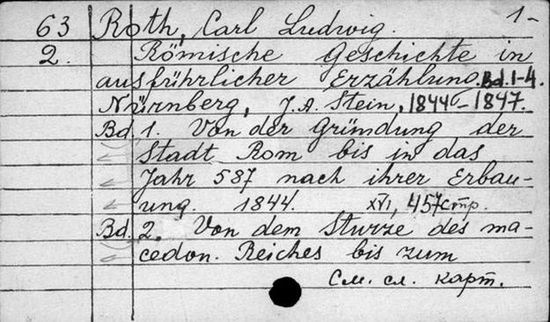 63 Roth, Carl Ludwig. 1-
2. Römische Geschichte in
ausführlicher Erzählung. Bd. 1-4.
Nürnberg, J. A. Stein, 1844-1847.
Bd. 1. Von der Gründung der
Stadt Rom bis in das
Jahr 587 nach ihrer Erbau-
ung. 1844. XVI, 457 стр.
Bd. 2. Von dem Sturze des ma-
cedon. Reiches bis zum
См. сл. карт.